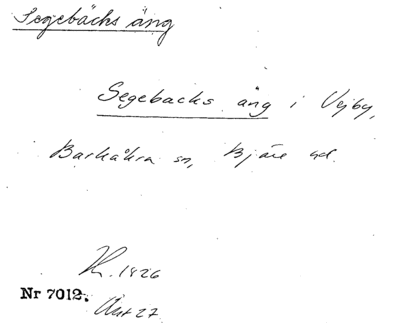 Segebächs äng
Segebacks äng i Vejby,
Barkåkra sn, Bjäre hd.
1826
Nr 7012.
Akt 27